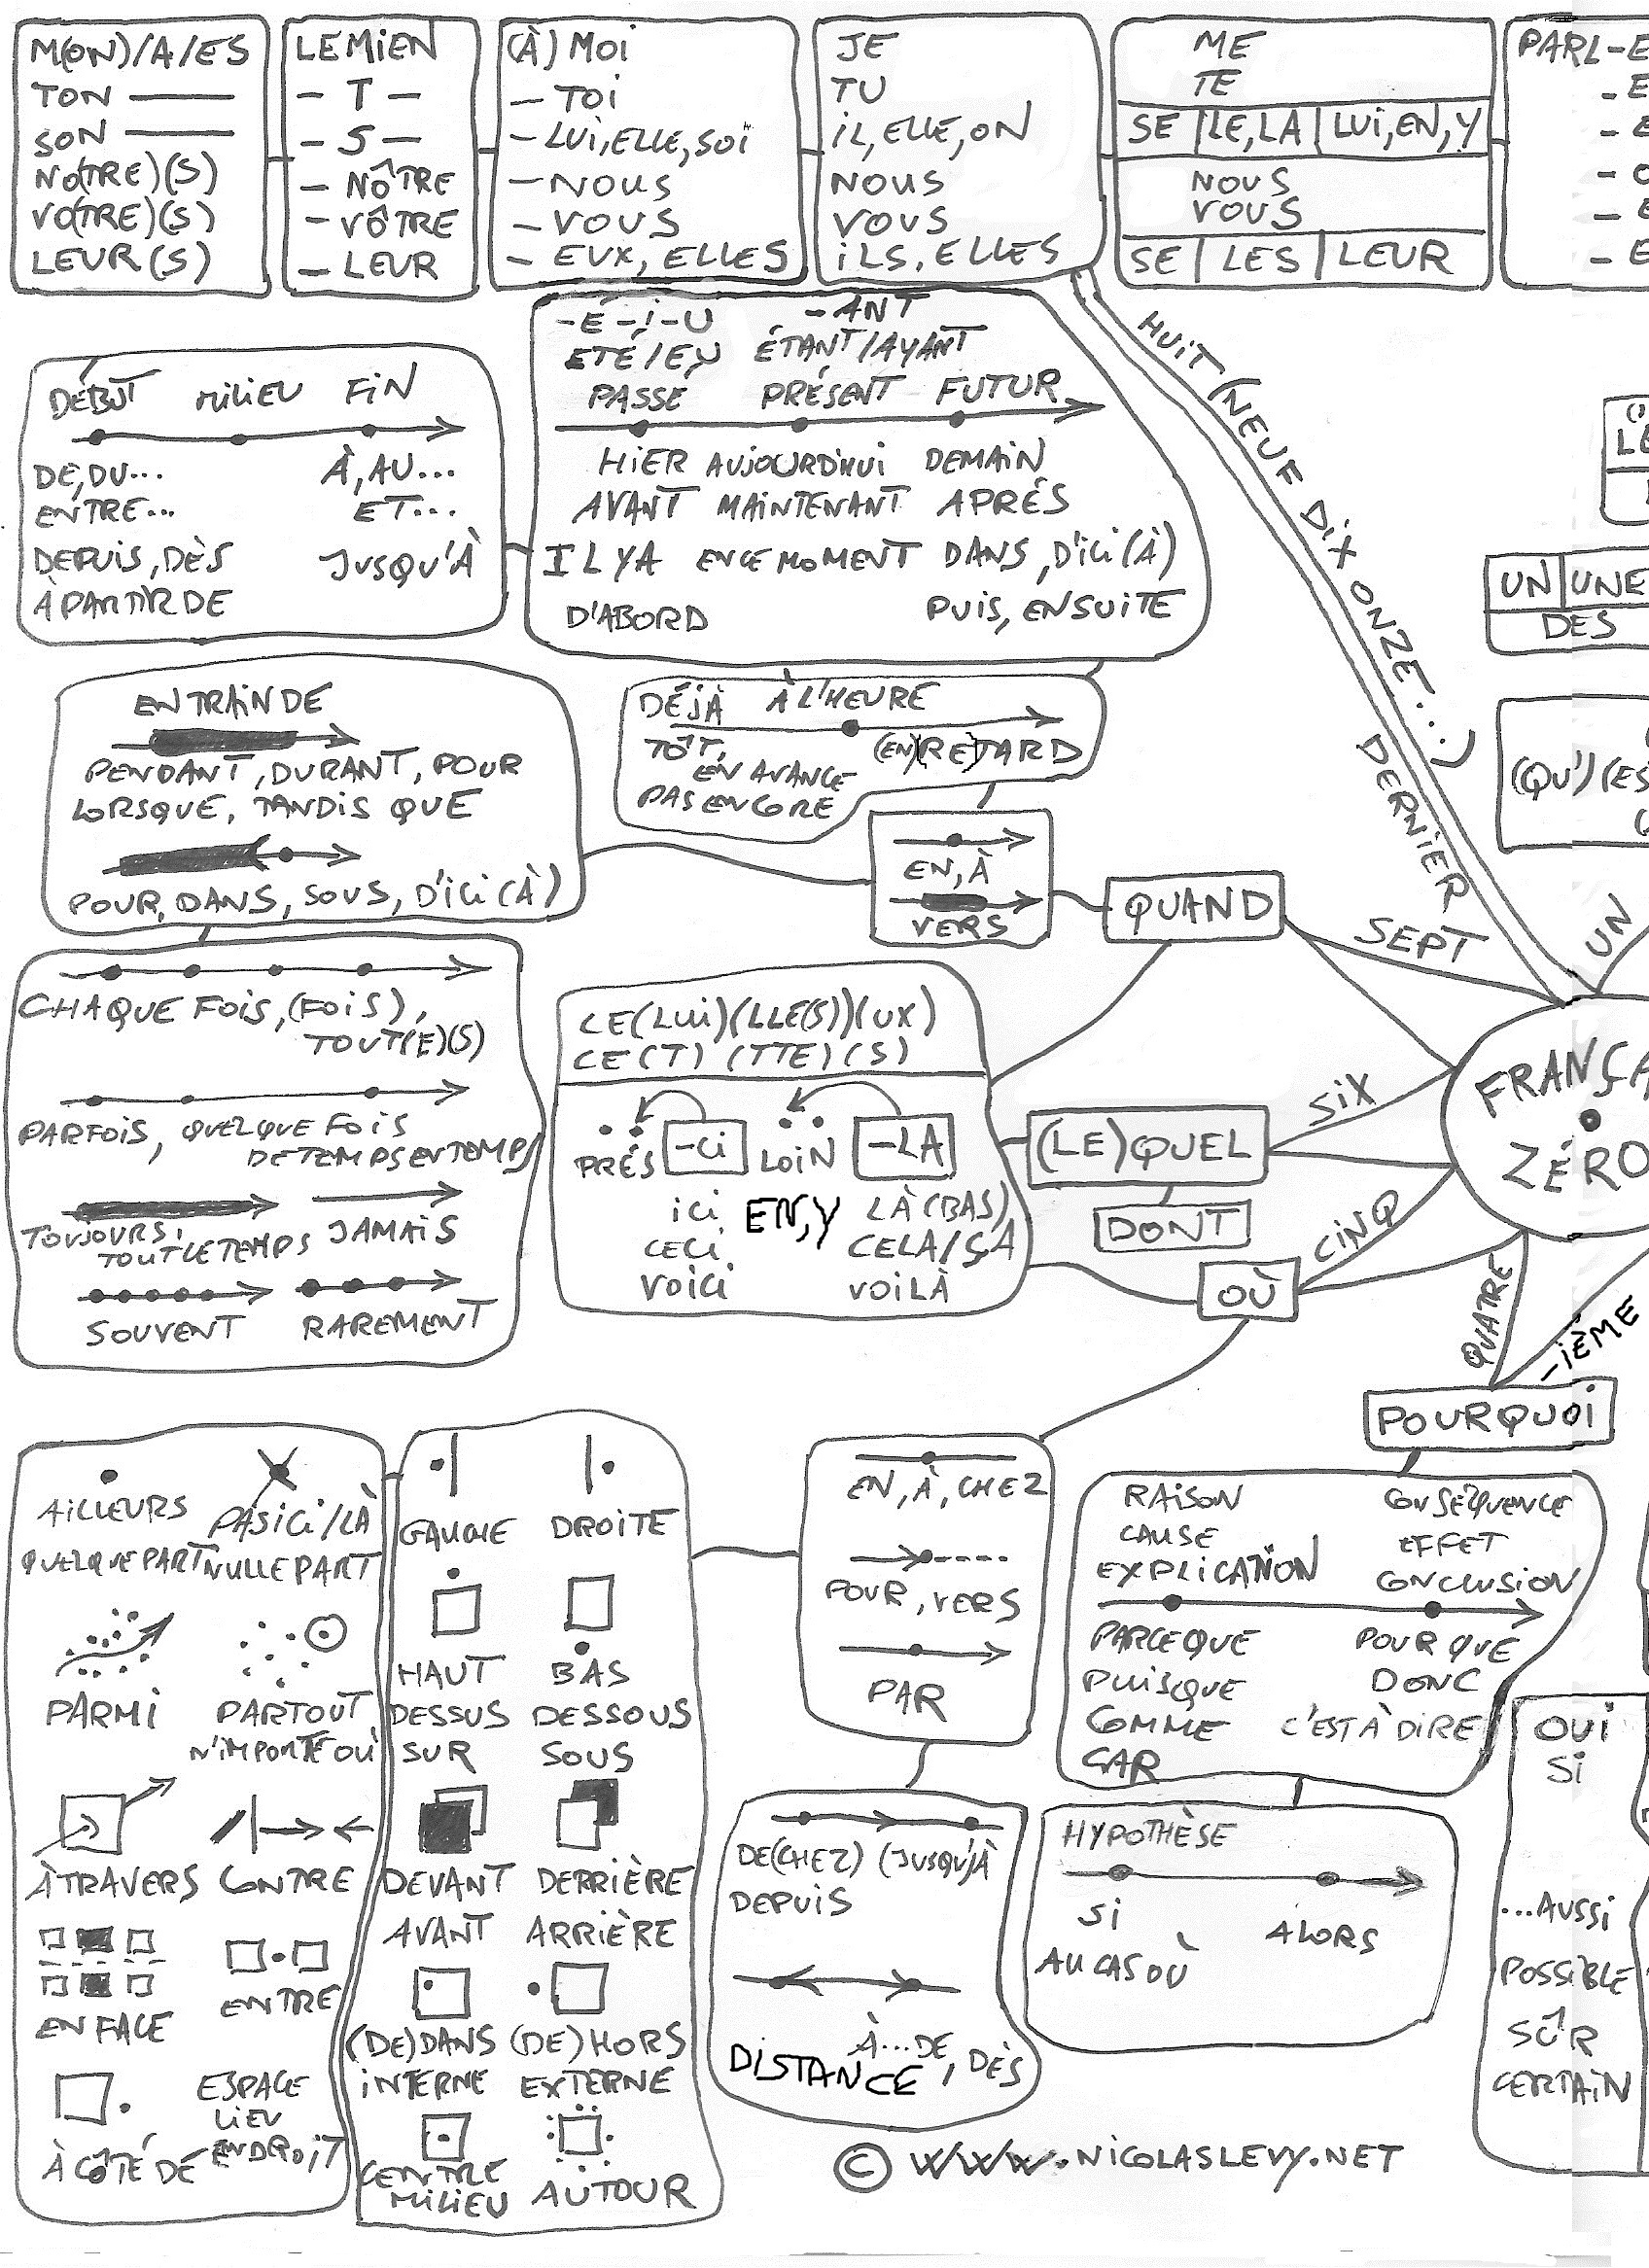 M(ON)/A/ES
TON
SON
NO(TRE)(S)
VO(TRE)(S)
LEUR(S)
LE MIEN
- T -
- S -
- NÔTRE
- VÔTRE
- LEUR
(À) MOI
- TOI
- LUI, ELLE, SOI
- NOUS
- VOUS
- EUX, ELLES
JE
TU
IL, ELLE, ON
NOUS
VOUS
ILS, ELLES
ME
TE
SE | LE, LA | LUI, EN, Y
NOUS
VOUS
SE | LES | LEUR
PARL-E
- E
- E
- E
- E
DÉBUT MILIEU FIN
DE, DU... À, AU...
ENTRE... ET...
DEPUIS, DÈS JUSQU'À
À PARTIR DE
-É -I -U -ANT
ETÉ/EU ÉTANT/AYANT
PASSÉ PRÉSENT FUTUR
HIER AUJOURD'HUI DEMAIN
AVANT MAINTENANT APRÉS
IL Y A EN CE MOMENT DANS, D'ICI (À)
D'ABORD PUIS, ENSUITE
HUIT (NEUF DIX ONZE...)
DERNIER
UN | UNE
DES
(QU')(ES
EN TRAIN DE
PENDANT, DURANT, POUR
LORSQUE, TANDIS QUE
POUR, DANS, SOUS, D'ICI (À)
DÉJÀ À L'HEURE
TÔT, (EN)(RE)TARD
EN AVANCE
PAS ENCORE
EN, À
VERS
QUAND
SEPT
UN
CHAQUE FOIS, (FOIS),
TOUT(E)(S)
PARFOIS, QUELQUE FOIS
DE TEMPS EN TEMPS
TOUJOURS, JAMAIS
TOUT LE TEMPS
SOUVENT RAREMENT
CE(LUI)(LLE(S))(UX)
CE(T) (TTE) (S)
PRÉS -CI LOIN -LA
ICI EN, Y LÀ (BAS)
CECI CELA/ÇA
VOICI VOILÀ
(LE)QUEL
DONT
OÙ
SIX
CINQ
FRANÇA
ZÉRO
QUATRE
-IÈME
POURQUOI
AILLEURS PAS ICI/LÀ
QUELQUE PART NULLE PART
PARMI PARTOUT
N'IMPORTE OÙ
À TRAVERS CONTRE
EN FACE ENTRE
À CÔTÉ DE
ESPACE
LIEU
ENDROIT
GAUCHE DROITE
HAUT BAS
DESSUS DESSOUS
SUR SOUS
DEVANT DERRIÈRE
AVANT ARRIÈRE
(DE)DANS (DE)HORS
INTERNE EXTERNE
CENTRE
MILIEU AUTOUR
EN, À, CHEZ
POUR, VERS
PAR
DE(CHEZ) (JUSQU')À
DEPUIS
À...DE, DÈS
DISTANCE
RAISON CONSÉQUENCE
CAUSE EFFET
EXPLICATION CONCLUSION
PARCE QUE POUR QUE
PUISQUE DONC
COMME C'EST À DIRE
CAR
HYPOTHÈSE
SI ALORS
AU CAS OÙ
OUI
SI
...AUSSI
POSSIBLE
SÛR
CERTAIN
© WWW.NICOLASLEVY.NET